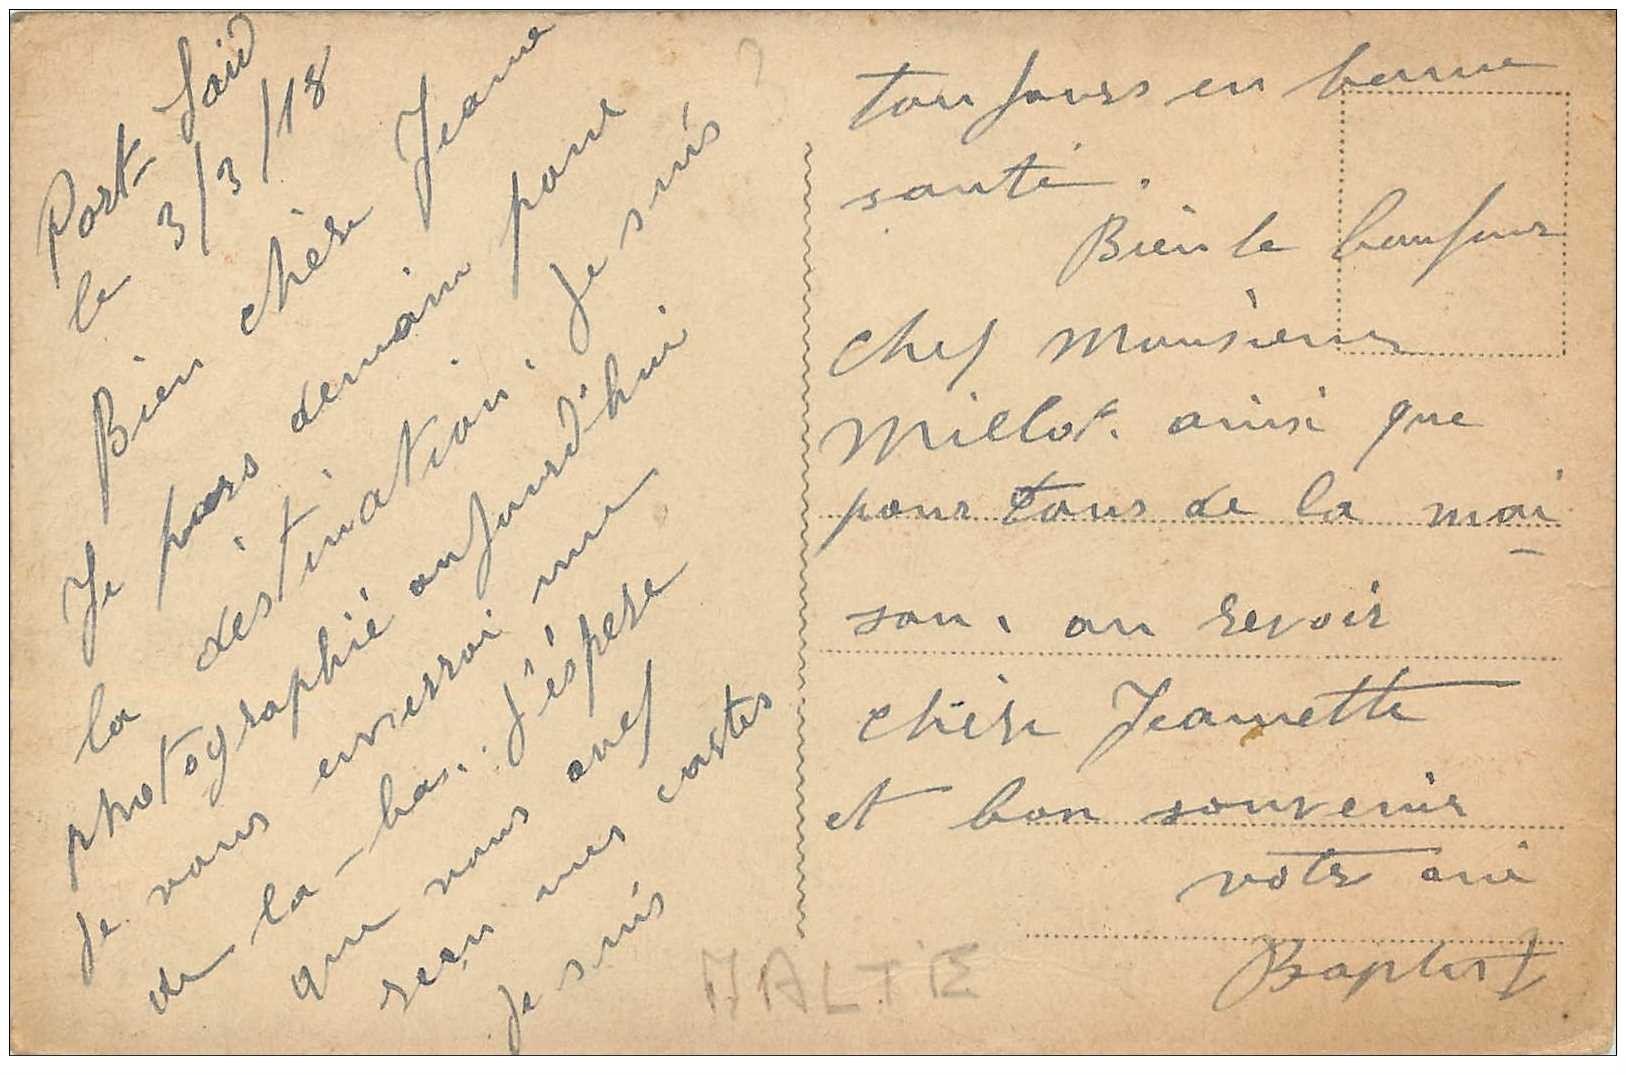 Port-Saïd
le 3/3/18
Bien chère Jeanne
Je pars demain pour
la destination. Je suis
photographié aujourd'hui
Je vous enverrai une
de la-bas. J'éspere
que vous avez
reçu mes cartes
Je suis
toujours en bonne
santé.
Bien le bonjour
chez Monsieur
Millot. ainsi que
pour tous de la mai
son. au revoir
chère Jeannette
et bon souvenir
votre ami
Baptist
MALTE